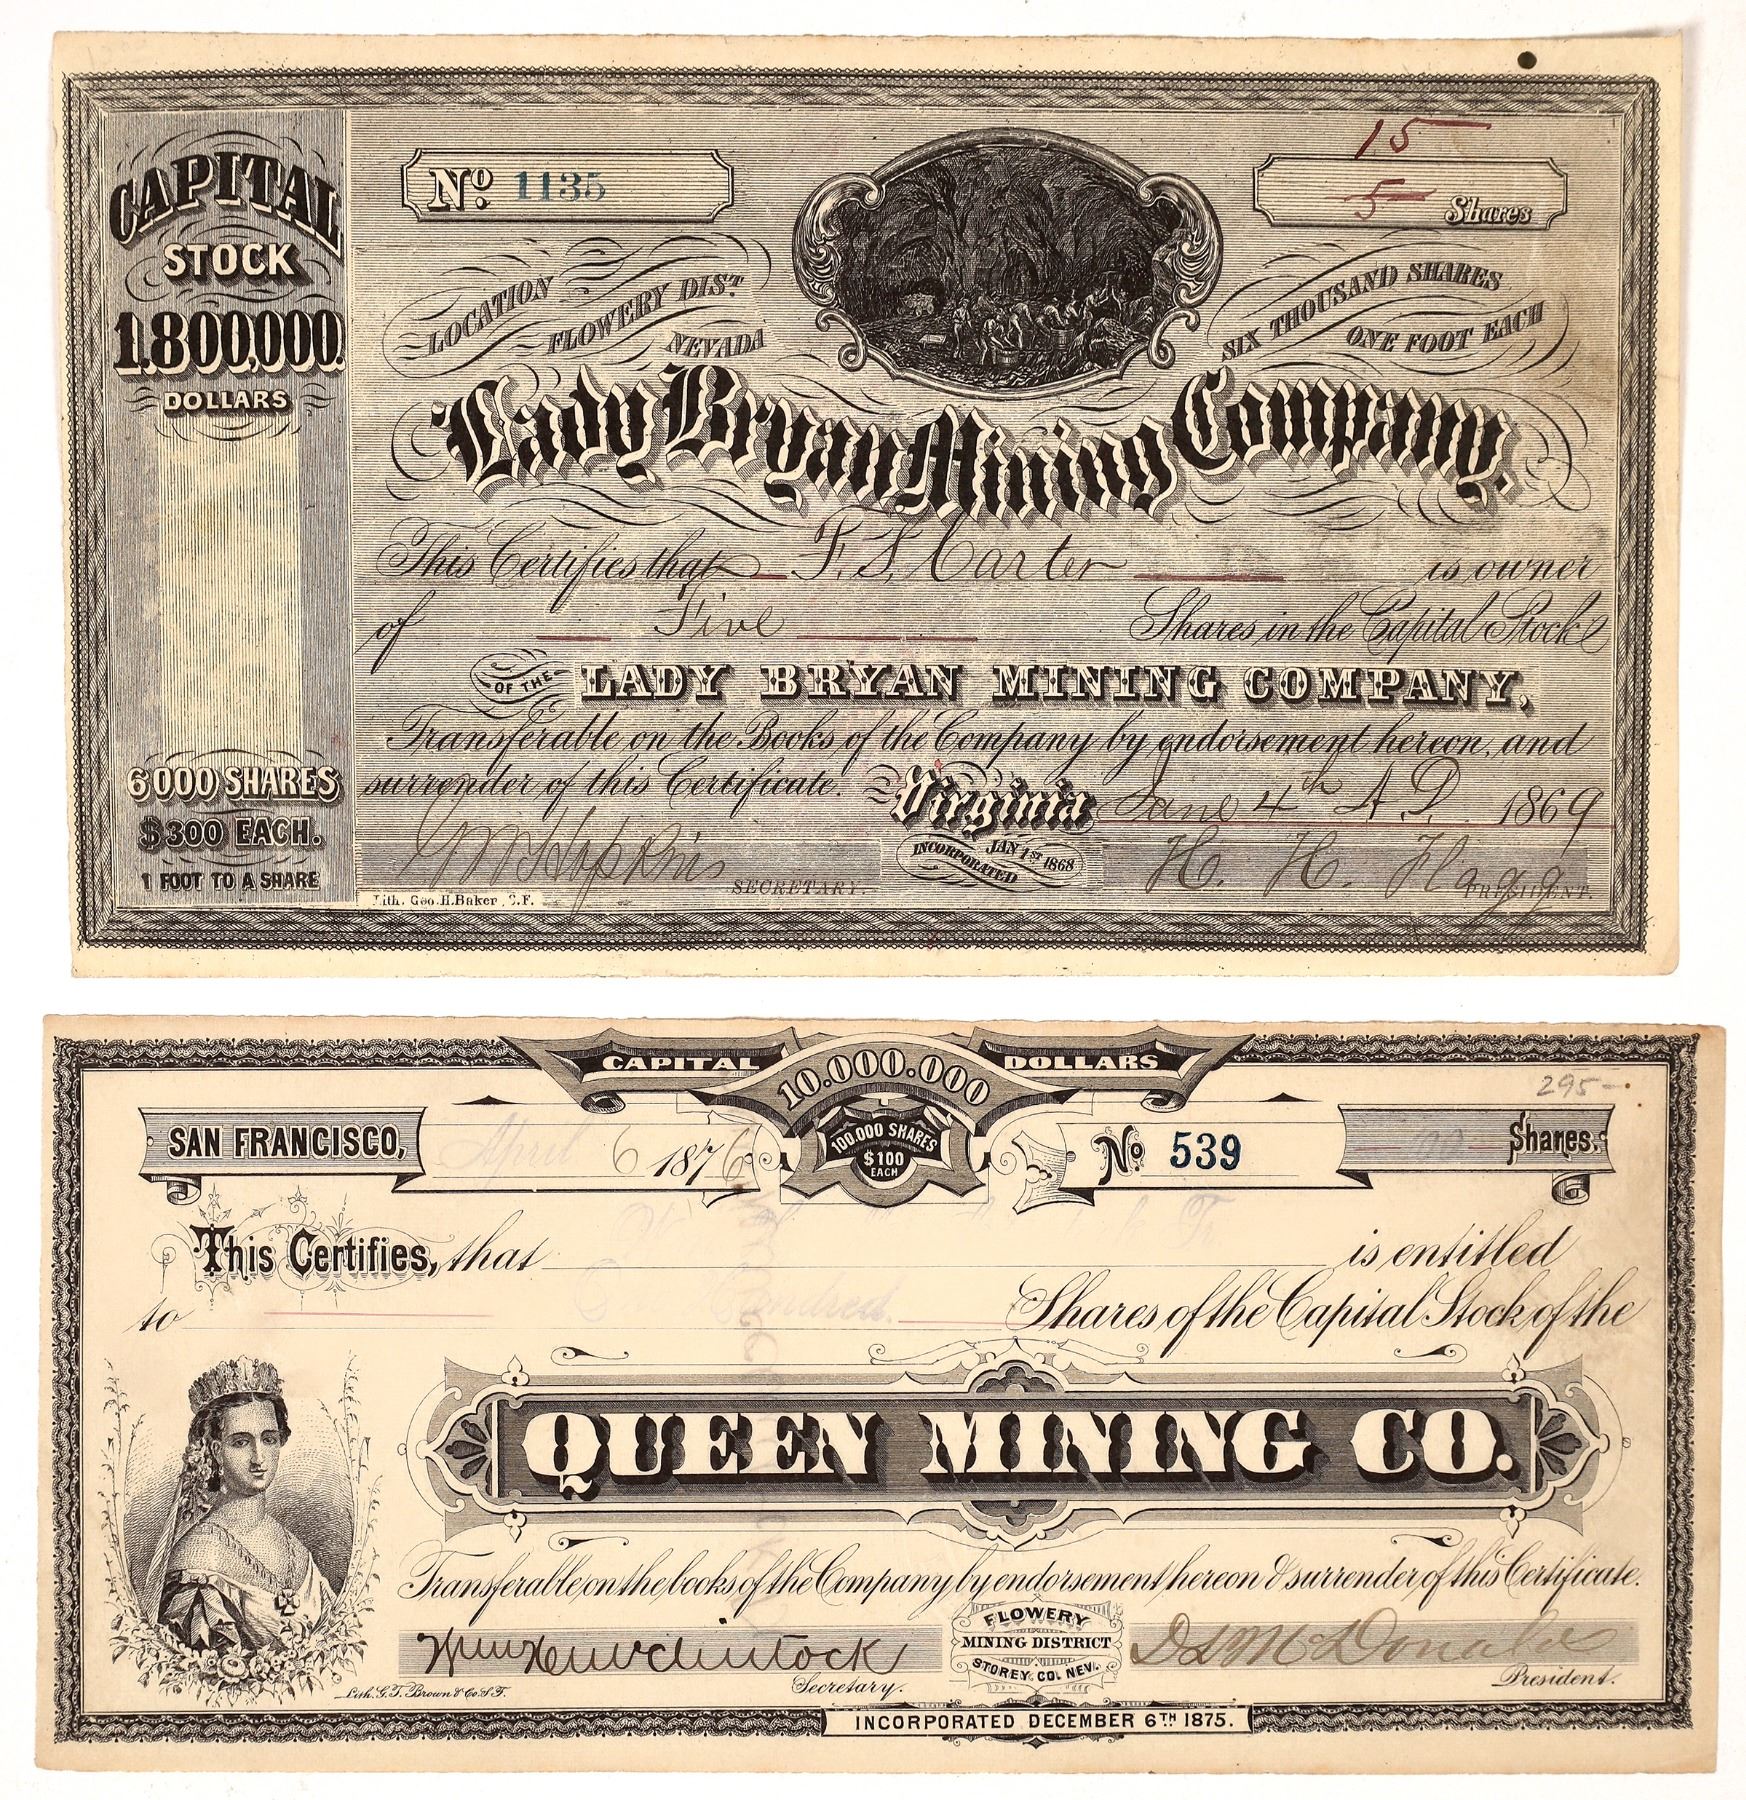 CAPITAL
STOCK
1.800,000.
DOLLARS
6000 SHARES
$300 EACH.
1 FOOT TO A SHARE
No. 1135
15
5 Shares
LOCATION
FLOWERY DIST.
NEVADA
SIX THOUSAND SHARES
ONE FOOT EACH
Lady Bryan Mining Company.
This Certifies that F. S. Carter is owner
of Five Shares in the Capital Stock
OF THE LADY BRYAN MINING COMPANY,
Transferable on the Books of the Company by endorsement hereon, and
surrender of this Certificate. Virginia June 4th A.D. 1869
INCORPORATED JAN 1ST 1868
Hopkins SECRETARY. H. H. Flagg PRESIDENT.
Lith. Geo. H. Baker, S.F.
CAPITAL 10.000.000 DOLLARS
295-
SAN FRANCISCO, April 6 1876
100.000 SHARES
$100
EACH
No 539
100 Shares.
This Certifies, that is entitled
to One Hundred Shares of the Capital Stock of the
QUEEN MINING CO.
Transferable on the books of the Company by endorsement hereon & surrender of this Certificate.
FLOWERY
MINING DISTRICT
STOREY. CO. NEV.
Secretary.
D L McDonald President.
Lith. G.T. Brown & Co. S.F.
INCORPORATED DECEMBER 6TH 1875.